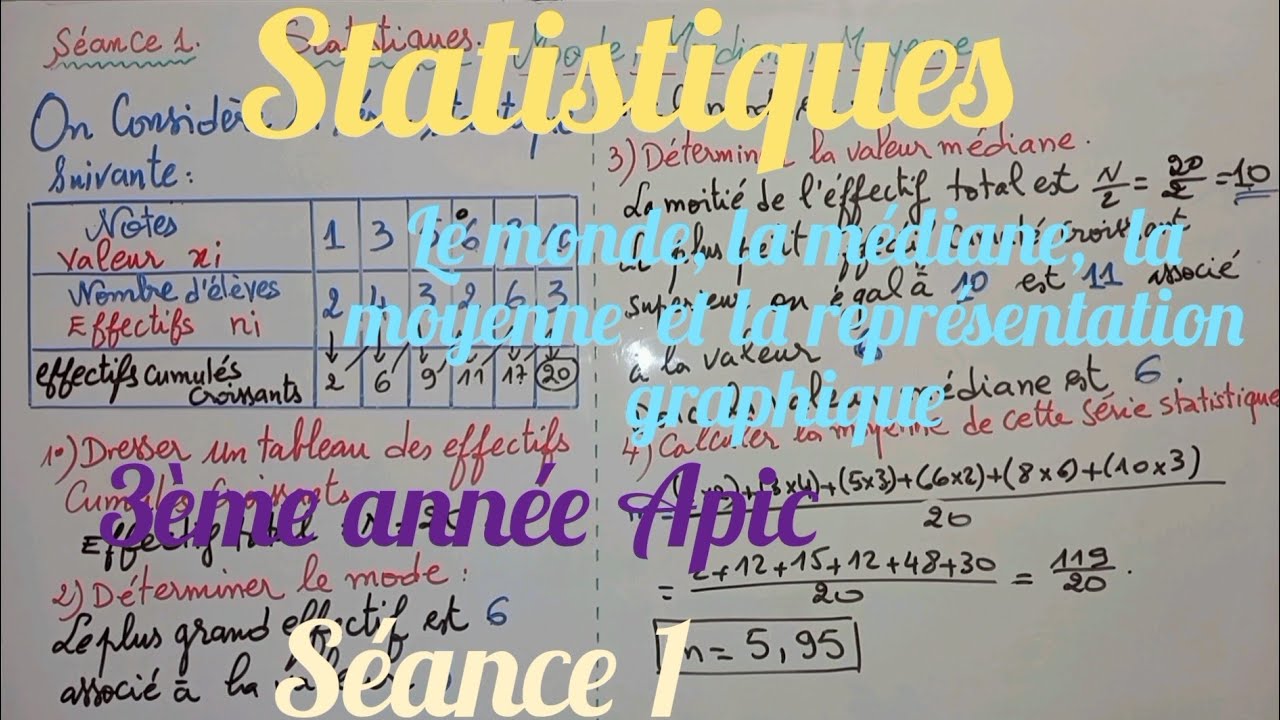 Statistiques
Le monde, la médiane, la
moyenne et la représentation
graphique
3ème année Apic
Séance 1
Séance 1. Statistiques. Mode, Médiane, Moyenne
On Considère
Suivante:
Notes 1 3 5 6
Valeur xi
Nombre d'élèves 2 4 3 2 6 3
Effectifs ni
effectifs cumulés
croissants 2 6 9 11 17 20
1°) Dresser un tableau des effectifs
Cumulés Croissants
Effectif total
2) Déterminer le mode :
Le plus grand effectif est 6
associé à la
3) Déterminer la valeur médiane.
La moitié de l'éffectif total est N/2 = 20/2 = 10
plus petit effectif cumulé croissant
superieur ou égal à 10 est 11 associé
à la valeur
médiane est 6.
4) Calculer la moyenne de cette série statistique
+(5x3)+(6x2)+(8x6)+(10x3)
20
= 2+12+15+12+48+30 / 20 = 119/20.
m = 5,95